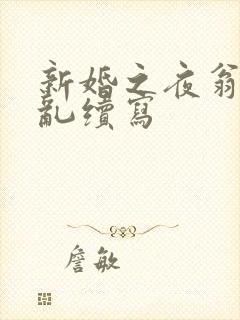 新婚之夜翁
亂續寫
詹敏